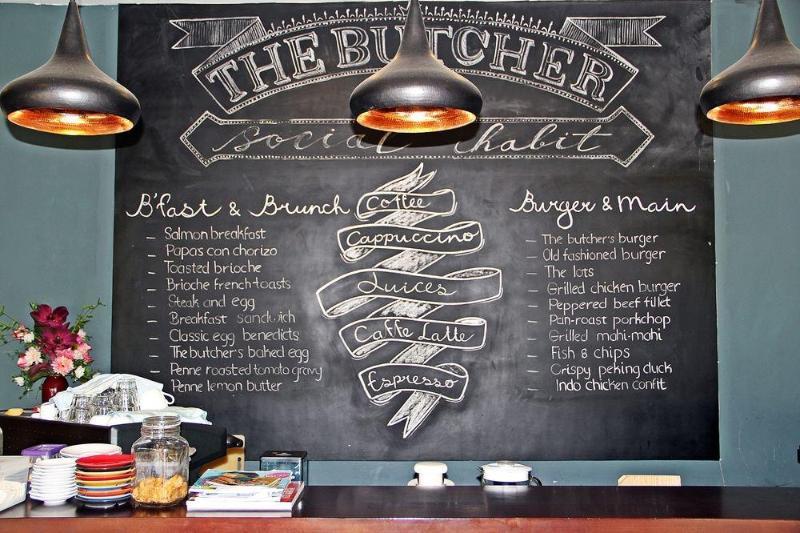 THE BUTCHER
social habit
B'fast & Brunch
– Salmon breakfast
– Papas con chorizo
– Toasted brioche
– Brioche french toasts
– Steak and egg
– Breakfast sandwich
– Classic egg benedicts
– The butcher's baked egg
– Penne roasted tomato gravy
– Penne lemon butter
Coffee
Cappuccino
Juices
Caffe Latte
Espresso
Burger & Main
– The butcher's burger
– Old fashioned burger
– The lots
– Grilled chicken burger
– Peppered beef fillet
– Pan-roast porkchop
– Grilled mahi-mahi
– Fish & chips
– Crispy peking duck
– Indo chicken confit